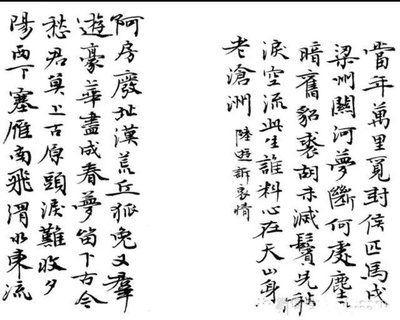 當年萬里覓封侯匹馬戍
梁州關河夢斷何處塵
暗舊貂裘胡未滅鬢先秋
淚空流此生誰料心在天山身
老滄洲 陸遊訴衷情
阿房廢址漢荒丘狐兔又羣
遊豪華盡成春夢留下古今
愁君莫上古原頭淚難收夕
陽西下塞雁南飛渭水東流